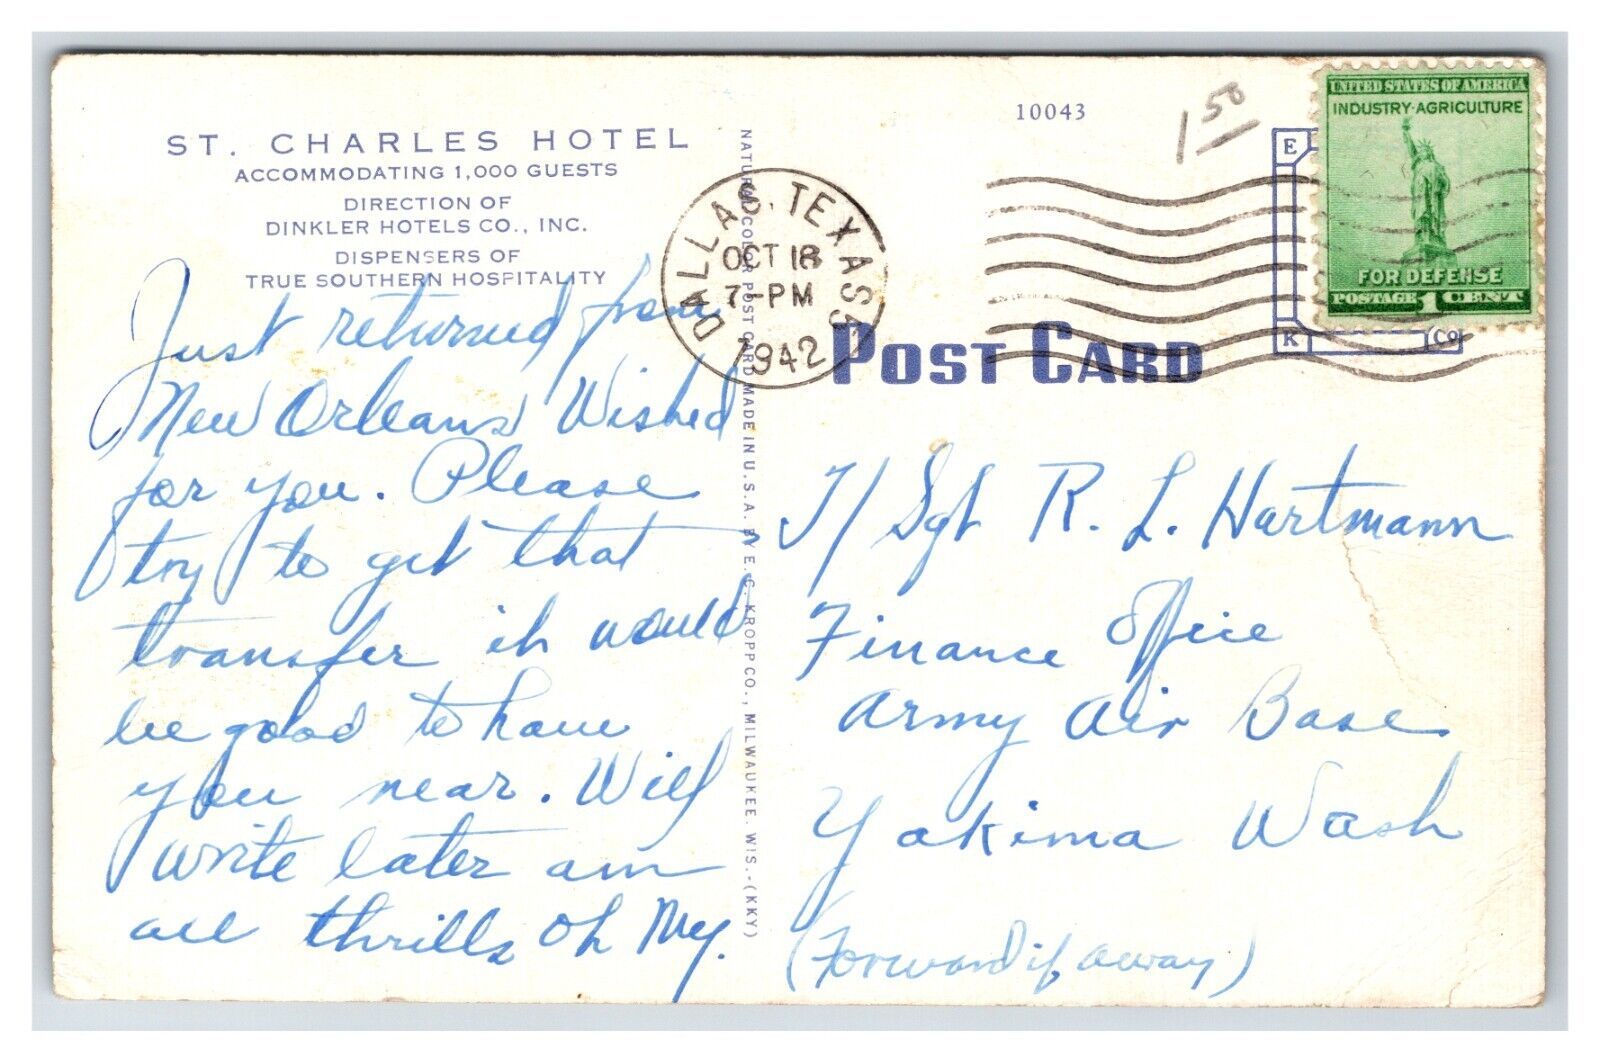 ST. CHARLES HOTEL
ACCOMMODATING 1,000 GUESTS
DIRECTION OF
DINKLER HOTELS CO., INC.
DISPENSERS OF
TRUE SOUTHERN HOSPITALITY
Just returned from
New Orleans Wished
for you. Please
try to get that
transfer it would
be good to have
you near. Will
write later am
all thrills Oh My.
NATURAL COLOR POST CARD MADE IN U.S.A. BY E. C. KROPP CO., MILWAUKEE. WIS.-(KKY)
10043
1 50
DALLAS, TEXAS
OCT 18
7-PM
1942
E
K
Co
UNITED STATES OF AMERICA
INDUSTRY·AGRICULTURE
FOR DEFENSE
POSTAGE 1 CENT
POST CARD
T/Sgt R. L. Hartmann
Finance Office
Army Air Base
Yakima Wash
(Forward if away)